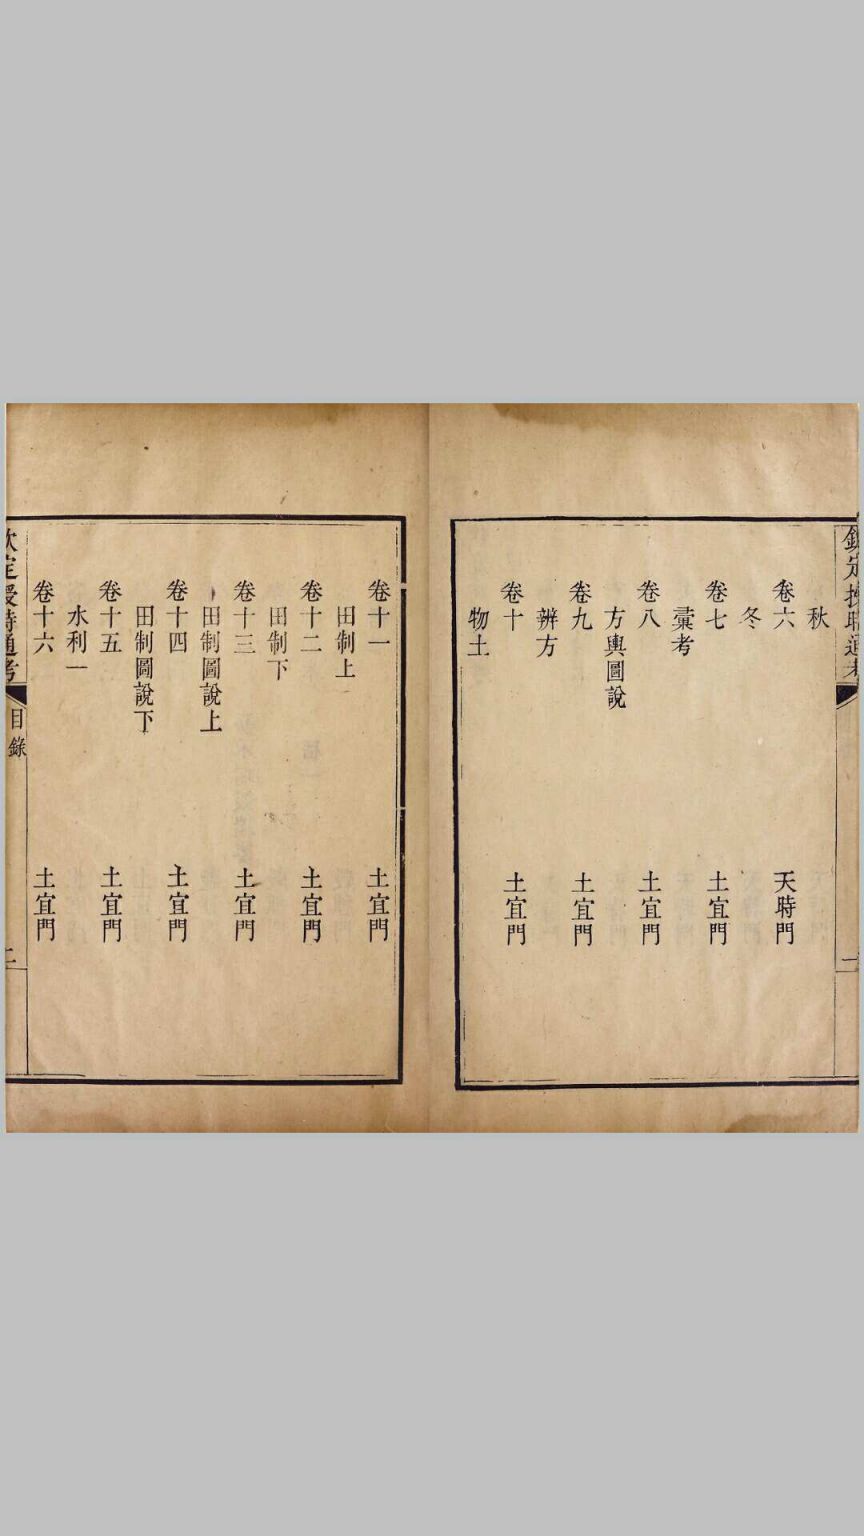 欽定授時通考
一
秋
卷六 天時門
冬
卷七 土宜門
彚考
卷八 土宜門
方輿圖說
卷九 土宜門
辨方
卷十 土宜門
物土
卷十一 土宜門
田制上
卷十二 土宜門
田制下
卷十三 土宜門
田制圖說上
卷十四 土宜門
田制圖說下
卷十五 土宜門
水利一
卷十六 土宜門
欽定授時通考 目錄 二